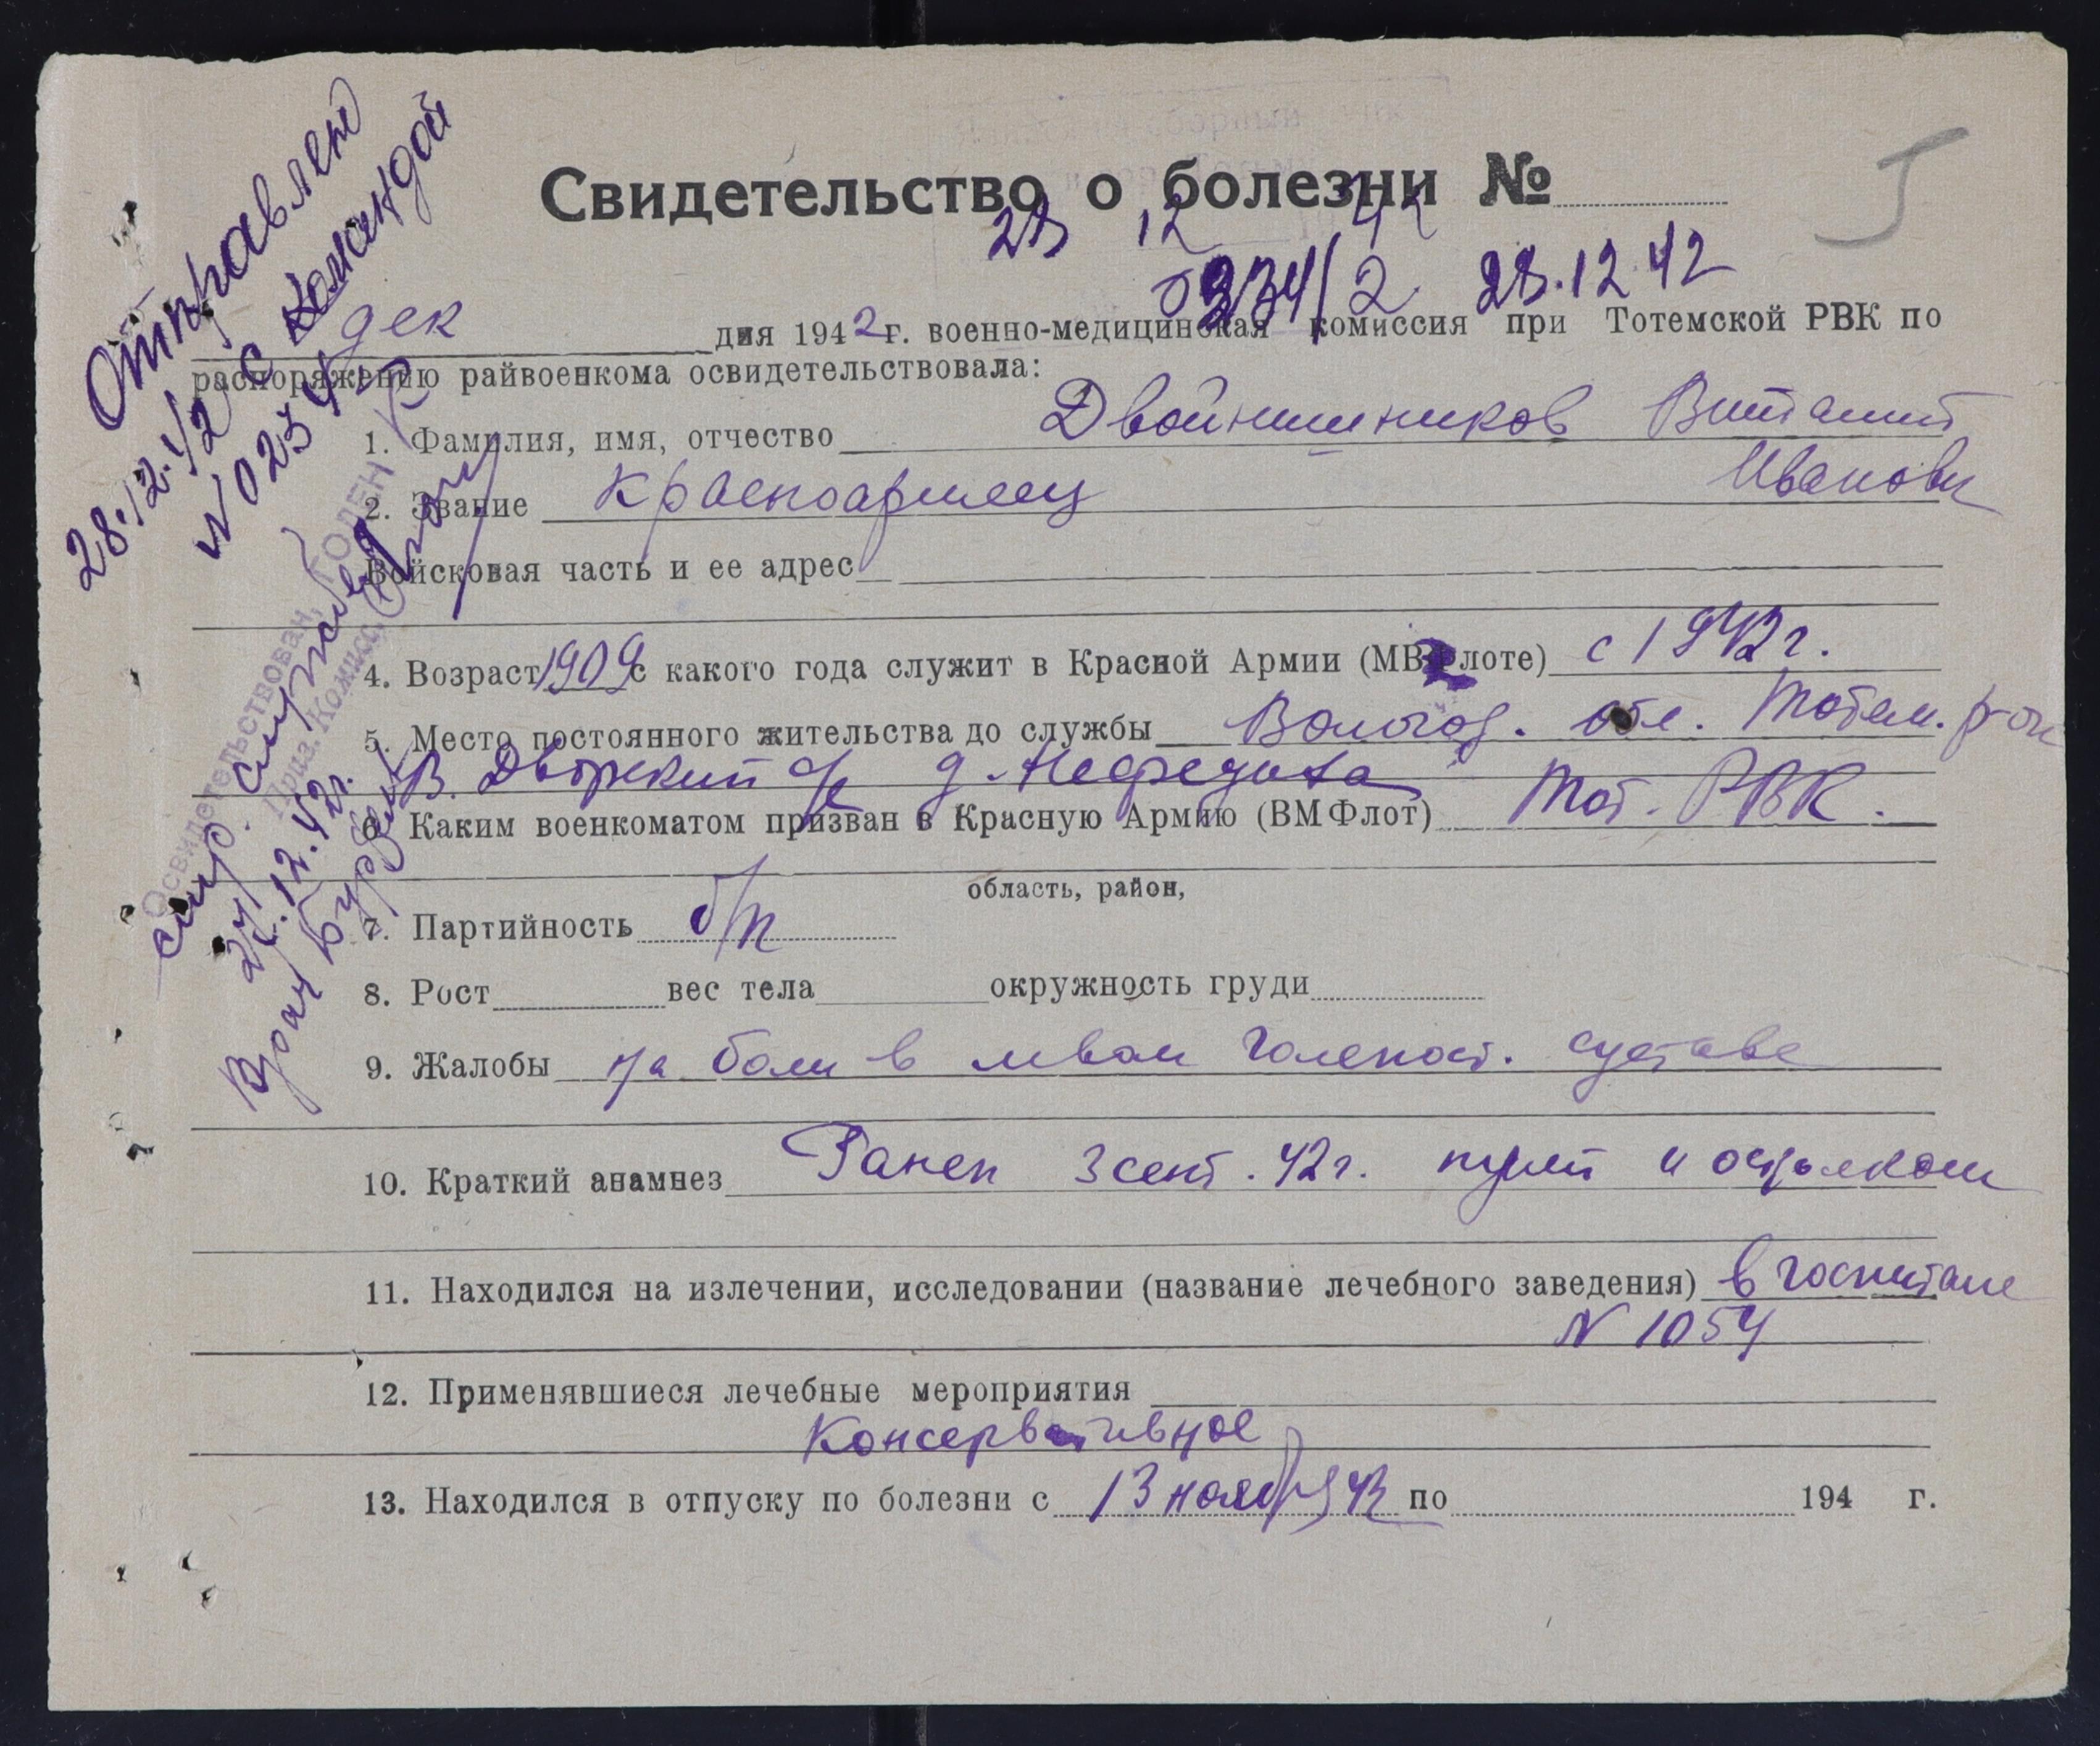 Свидетельство о болезни №
28 12 42
0234/2 28.12.42
дек дня 1942 г. военно-медицинская комиссия при Тотемской РВК по
распоряжению райвоенкома освидетельствовала:
1. Фамилия, имя, отчество Двойнишников Виталий
Иванович
2. Звание Красноармеец
Войсковая часть и ее адрес
4. Возраст 1909 с какого года служит в Красной Армии (МВФлоте) с 1942 г.
5. Место постоянного жительства до службы Вологод. обл. Тотем. р-он
В. Дворский с/с д.
6. Каким военкоматом призван в Красную Армию (ВМФлот) Тот. РВК.
область, район,
7. Партийность б/п
8. Рост вес тела окружность груди
9. Жалобы на боли в левом голеност. суставе
10. Краткий анамнез Ранен 3 сент. 42 г. пулей и осколком
11. Находился на излечении, исследовании (название лечебного заведения) в госпитале
N 1054
12. Применявшиеся лечебные мероприятия
Консервативное
13. Находился в отпуску по болезни с 13 ноября 42 по 194 г.
Отправлен
28.12.42 с командой
N 0234
Освидетельствован, ГОДЕН К
строев. службе
Приз. Комисс.
27.12.42 г.
Врач